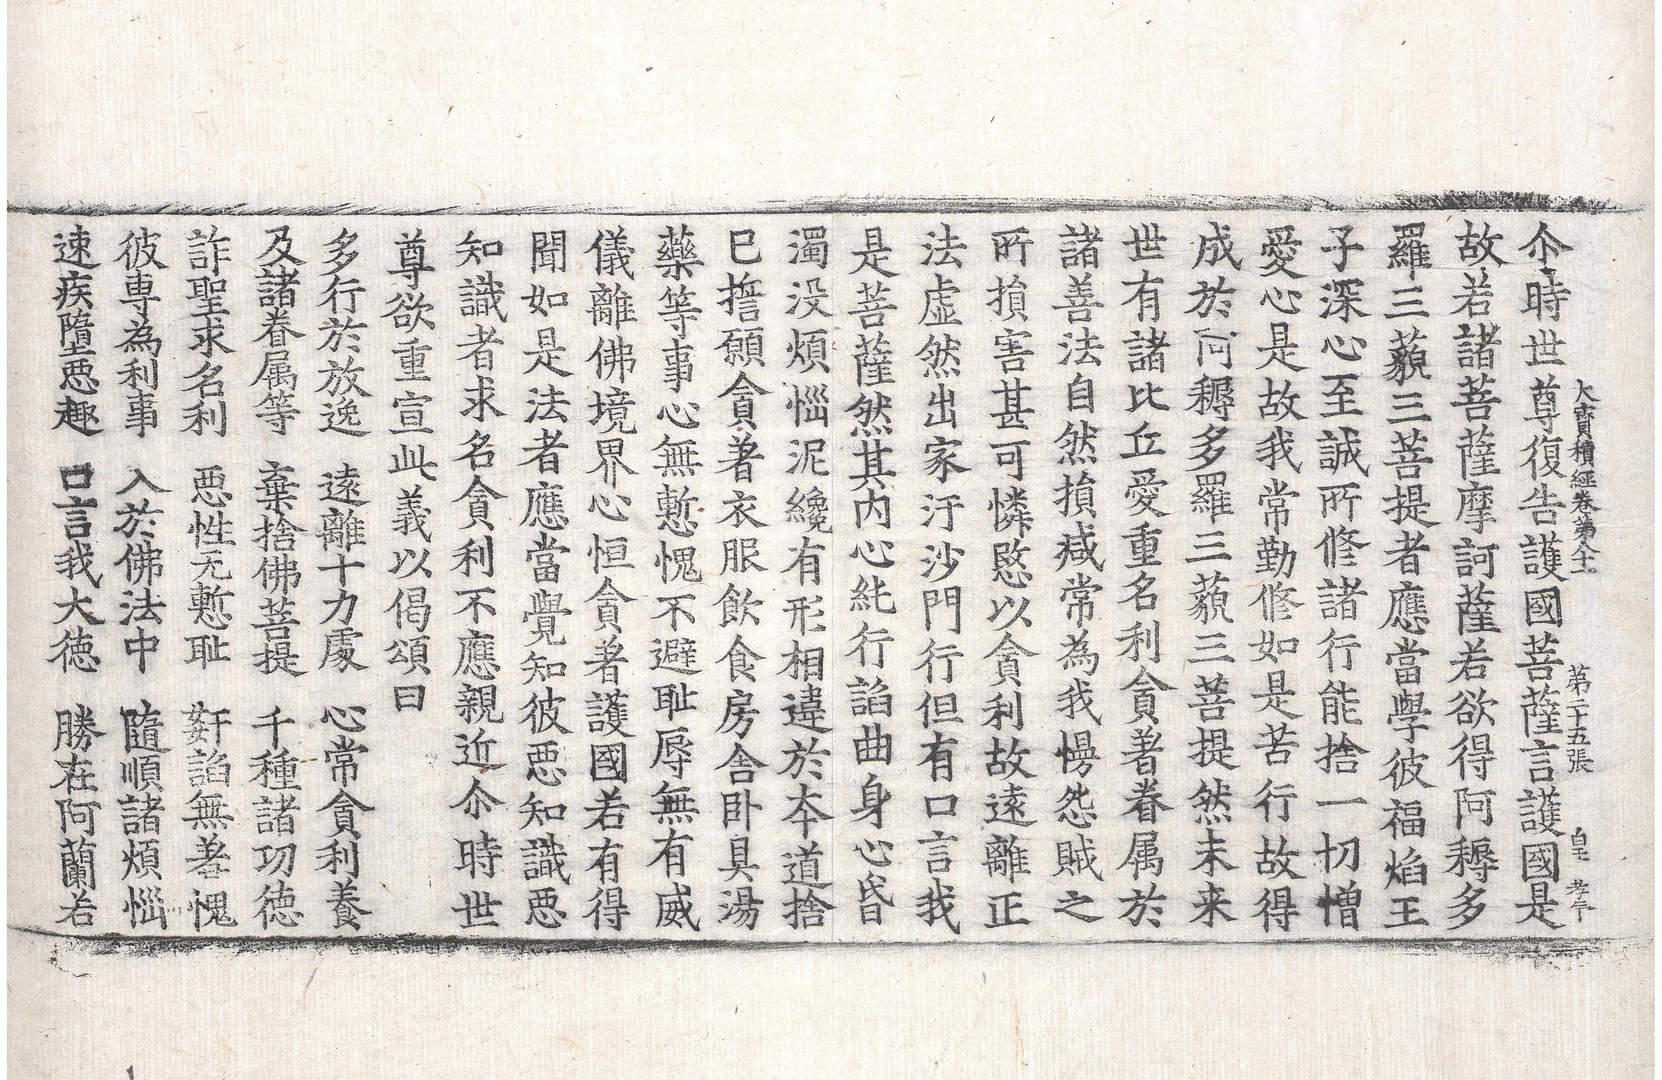 大寳積經卷第八十一 第二十五張 皇
尒時世尊復告護國菩薩言護國是
故若諸菩薩摩訶薩若欲得阿耨多
羅三藐三菩提者應當學彼福焰王
子深心至誠所修諸行能捨一切憎
愛心是故我常勤修如是苦行故得
成於阿耨多羅三藐三菩提然未来
世有諸比丘愛重名利貪著眷属於
諸善法自然損减常為我慢怨賊之
所損害甚可憐愍以貪利故遠離正
法虚然出家汙沙門行但有口言我
是菩薩然其内心純行諂曲身心昏
濁没煩惱泥纔有形相違於本道捨
已擔願貪著衣服飲食房舍卧具湯
藥等事心無慙愧不避耻辱無有威
儀離佛境界心恒貪著護國若有得
聞如是法者應當覺知彼惡知識惡
知識者求名貪利不應親近尒時世
尊欲重宣此義以偈頌曰
多行於放逸 遠離十力處 心常貪利養
及諸眷属等 棄捨佛菩提 千種諸功德
詐聖求名利 惡性无慙耻 姧諂無羞愧
彼専為利事 入於佛法中 隨順諸煩惱
速疾墮惡趣 口言我大徳 勝在阿蘭若